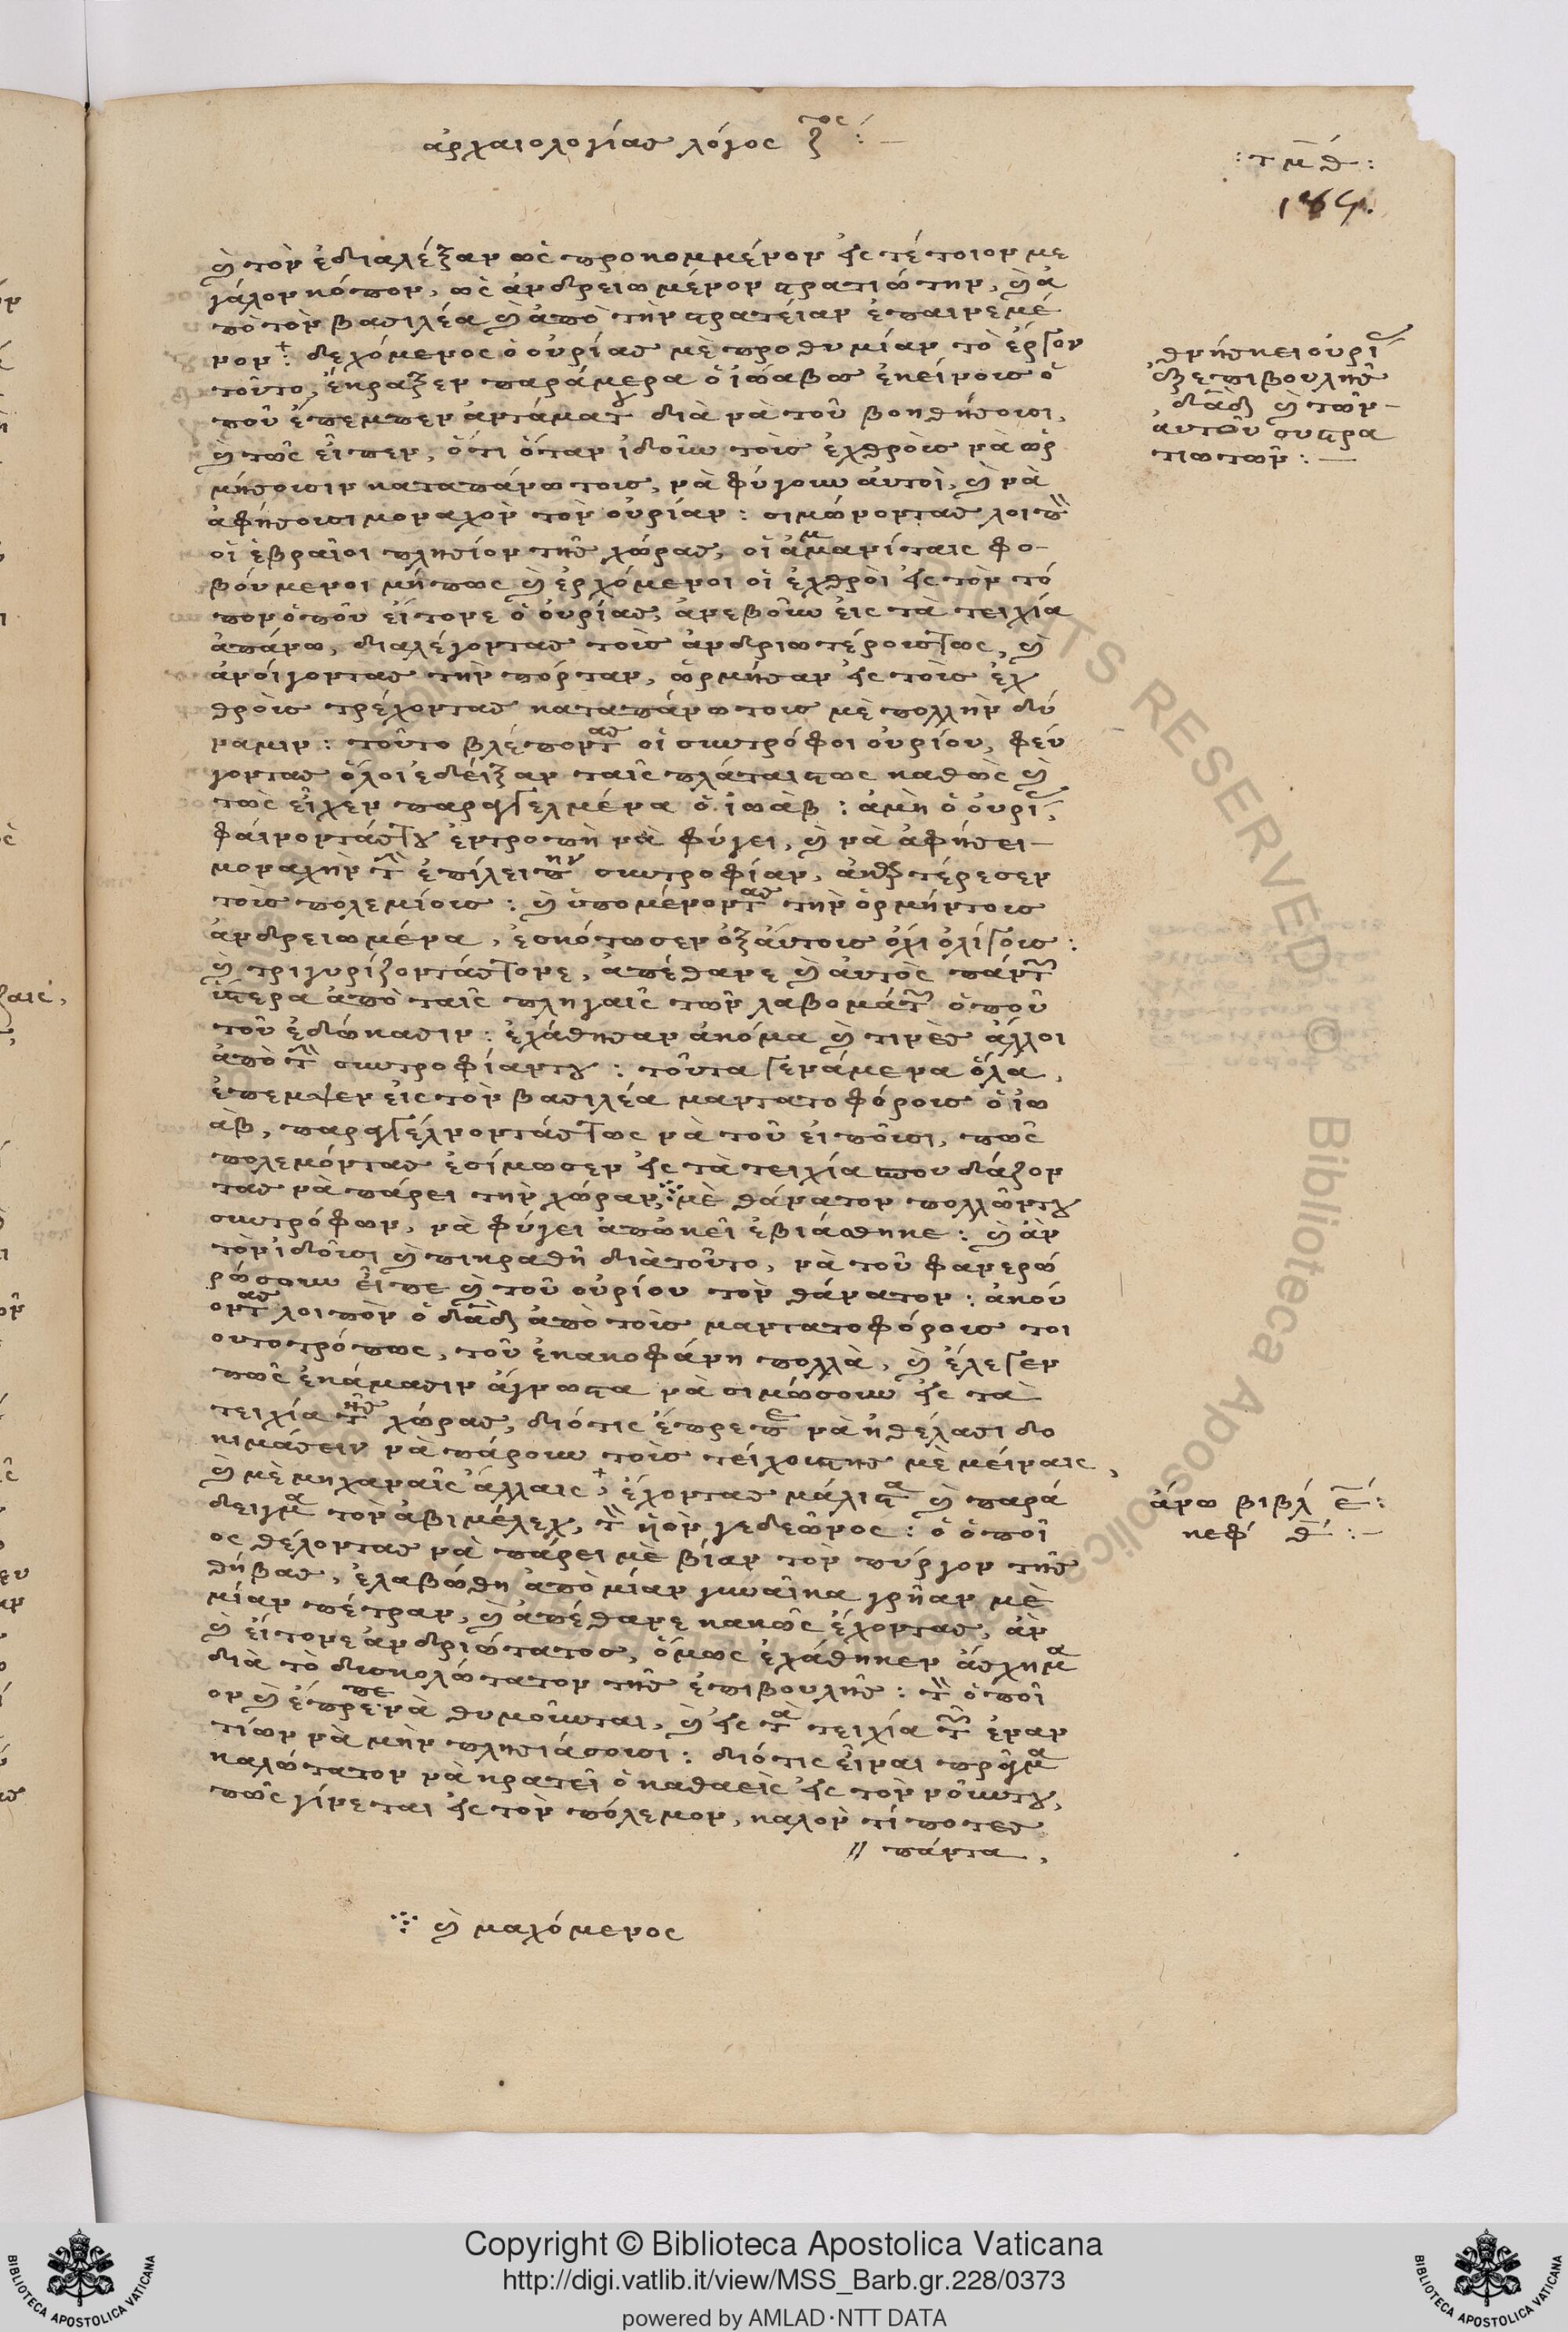 ἀρχαιολογίας λόγος ζ^τος :—
: τ μ θ :
184.
ϗ τὸν ἐδιαλέξαν ὡς προκομμένον εἰς τέτοιον με
γάλον κόπον, ὡς ἀνδρειωμένον στρατιώτην, ϗ ἀ
πὸ τὸν βασιλέα ϗ ἀπὸ τὴν στρατείαν ἐπαινεμέ
νον + : δεχόμενος ὁ οὐρίας μὲ προθυμίαν τὸ ἔργον
τοῦτο, ἔκραξεν παράμερα ὁ ἰώαβος ἐκείνους ὁ
ποῦ ἔπεμπεν ἀντάματου διὰ νὰ τοῦ βοηθήσουσι,
ϗ τῶς εἶπεν, ὅτι ὅταν ἰδοῦν τοὺς ἐχθροὺς νὰ ὡρ
μήσουσιν καταπάνω τους, νὰ φύγουν αὐτοὶ, ϗ νὰ
ἀφήσουσι μοναχὸν τὸν οὐρίαν : σιμώνοντας λοιπὸν
οἱ ἑβραῖοι πλησίον τῆς χώρας, οἱ ἀμμανίταις φο-
βούμενοι μήπως ϗ ἐρχόμενοι οἱ ἐχθροὶ εἰς τὸν τό
πον ὁποῦ εἴτονε ὁ οὐρίας, ἀνεβοῦν εἰς τὰ τειχία
ἀπάνω, διαλέγοντας τοὺς ἀνδριωτέρους τως, ϗ
ἀνοίγοντας τὴν πόρταν, ὥρμησαν εἰς τοὺς ἐχ
θροὺς τρέχοντας καταπάνω τους μὲ πολλὴν δύ
ναμιν : τοῦτο βλέποντας οἱ συντρόφοι οὐρίου, φεύ
γοντας ὅλοι ἐδείξαν ταῖς πλάταις τως καθὼς ϗ
τῶς εἶχεν παραγγελμένα ὁ ἰωάβ : ἀμὴ ὁ οὐρίας,
φαίνοντάς του ἐντροπὴ νὰ φύγει, ϗ νὰ ἀφήσει-
μοναχὴν τὴν ἐπίλειπην συντροφίαν, ἀκαρτέρεσεν
τοὺς πολεμίους : ϗ ὑπομένοντας τὴν ὁρμήν τους
ἀνδρειωμένα, ἐσκότωσεν ἐξ αὐτους ὄχι ὀλίγους :
ϗ τριγυρίζοντάς τονε, ἀπέθανε ϗ αὐτὸς πάντων
ὕστερα ἀπὸ ταῖς πληγαῖς τῶν λαβομάτων ὁποῦ
τοῦ ἐδώκασιν : ἐχάθησαν ἀκόμα ϗ τινὲς ἄλλοι
ἀπὸ τὴν συντροφίαν του : τοῦτα γενάμενα ὅλα,
ἔπεμψεν εἰς τὸν βασιλέα μαντατοφόρους ὁ ἰω
άβ, παραγγέλνοντάς τως νὰ τοῦ εἰποῦσι, πῶς
πολεμόντας ἐσίμωσεν εἰς τὰ τειχία σπουδάζον
τας νὰ πάρει τὴν χώραν, ⁘ μὲ θάνατον πολλῶν του
συντρόφων, νὰ φύγει ἀπὠκεῖ ἐβιάσθηκε : ϗ ἂν
τὸν ἰδοῦσι ϗ πικραθῆ διὰ τοῦτο, νὰ τοῦ φανερώ
ρώσουν εἶπε ϗ τοῦ οὐρίου τὸν θάνατον : ἀκού
οντας λοιπὸν ὁ δαδ ἀπὸ τοὺς μαντατοφόρους τοι
ουτοτρόπως, τοῦ ἐκακοφάνη πολλὰ, ϗ ἔλεγεν
πῶς ἐκάμασιν ἄγνωστα νὰ σιμώσουν εἰς τὰ
τειχία τῆς χώρας, διότις ἔπρεπε νὰ ἠθέλασι δο
κιμάσειν νὰ πάρουν τοὺς τείχους της μὲ μείναις,
ϗ μὲ μηχαναῖς ἄλλαις +, ἔχοντας μάλιστα ϗ παρά
δειγμα τὸν ἀβιμέλεχ, τὸν ἡὸν γεδεῶνος : ὁ ὁποῖ
ος θέλοντας νὰ πάρει μὲ βίαν τὸν πύργον τῆς
θήβας, ἐλαβώθη ἀπὸ μίαν γυναῖκα γρῆαν μὲ
μίαν πέτραν, ϗ ἀπέθανε κακῶς ἔχοντας, ἂν
ϗ εἴτονε ἀνδριώτατος, ὅμως ἐχάθηκεν ἄσχημα
διὰ τὸ δισκολώτατον τῆς ἐπιβουλῆς : τὸν ὁποῖ
ον ϗ ἔπρεπε νὰ θυμοῦνται, ϗ εἰς τὰ τειχία τῶν ἐναν
τίων νὰ μὴν πλησιάσουσι : διότις εἶναι πρᾶγμα
καλώτατον νὰ κρατεῖ ὁ καθαεὶς εἰς τὸν νοῦν του,
πῶς γίνεται εἰς τὸν πόλεμον, καλὸν τίποτες
// πάντα,
⁘ ϗ μαχόμενος
θνήσκει οὐρίας
ἐξ ἐπιβουλῆς
δαδ ϗ τῶν-
αυτοῦ συστρα
τιωτῶν :—
ἄνω βιβλ ε :
κεφ θ :—
Copyright © Biblioteca Apostolica Vaticana
http://digi.vatlib.it/view/MSS_Barb.gr.228/0373
powered by AMLAD·NTT DATA